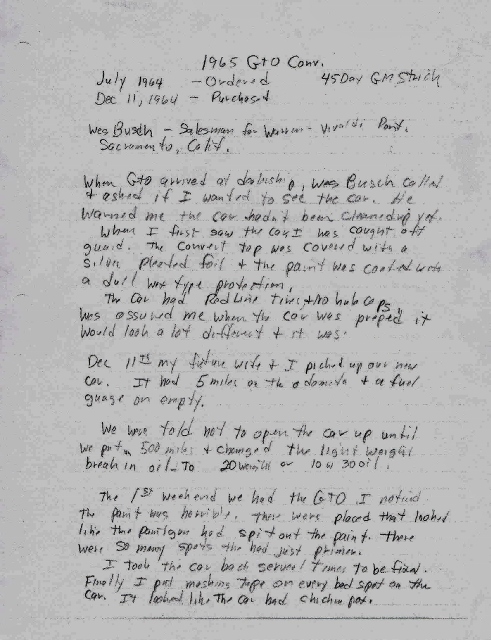 1965 GTO Conv.
July 1964 - Ordered 45 Day GM Strick
Dec 11, 1964 - Purchased
Wes Busch - Salesman for Warren - Vivaldi Pont.
Sacramento, Calif.
When GTO arrived at dealership, Wes Busch called
+ asked if I wanted to see the car. He
warned me the car hadn't been cleaned up yet.
When I first saw the car I was caught off
guard. The convert top was covered with a
silver pleated foil + the paint was coated with
a dull wax type protection.
The car had Redline tires + no hub caps,
was assured me when the car was preped it
would look a lot different + it was.
Dec 11th my future wife + I picked up our new
car. It had 5 miles on the odometer + a fuel
guage on empty.
We were told not to open the car up until
we put 500 miles + changed the light weight
break in oil to 20 weight or 10 w 30 oil.
The 1st weekend we had the GTO I noticed
the paint was horrible. There were placed that looked
like the paintgun had spit out the paint. There
were so many spots the had just primer.
I took the car back several times to be fixed.
Finally I put masking tape on every bad spot on the
car. It looked like the car had chicken pox.